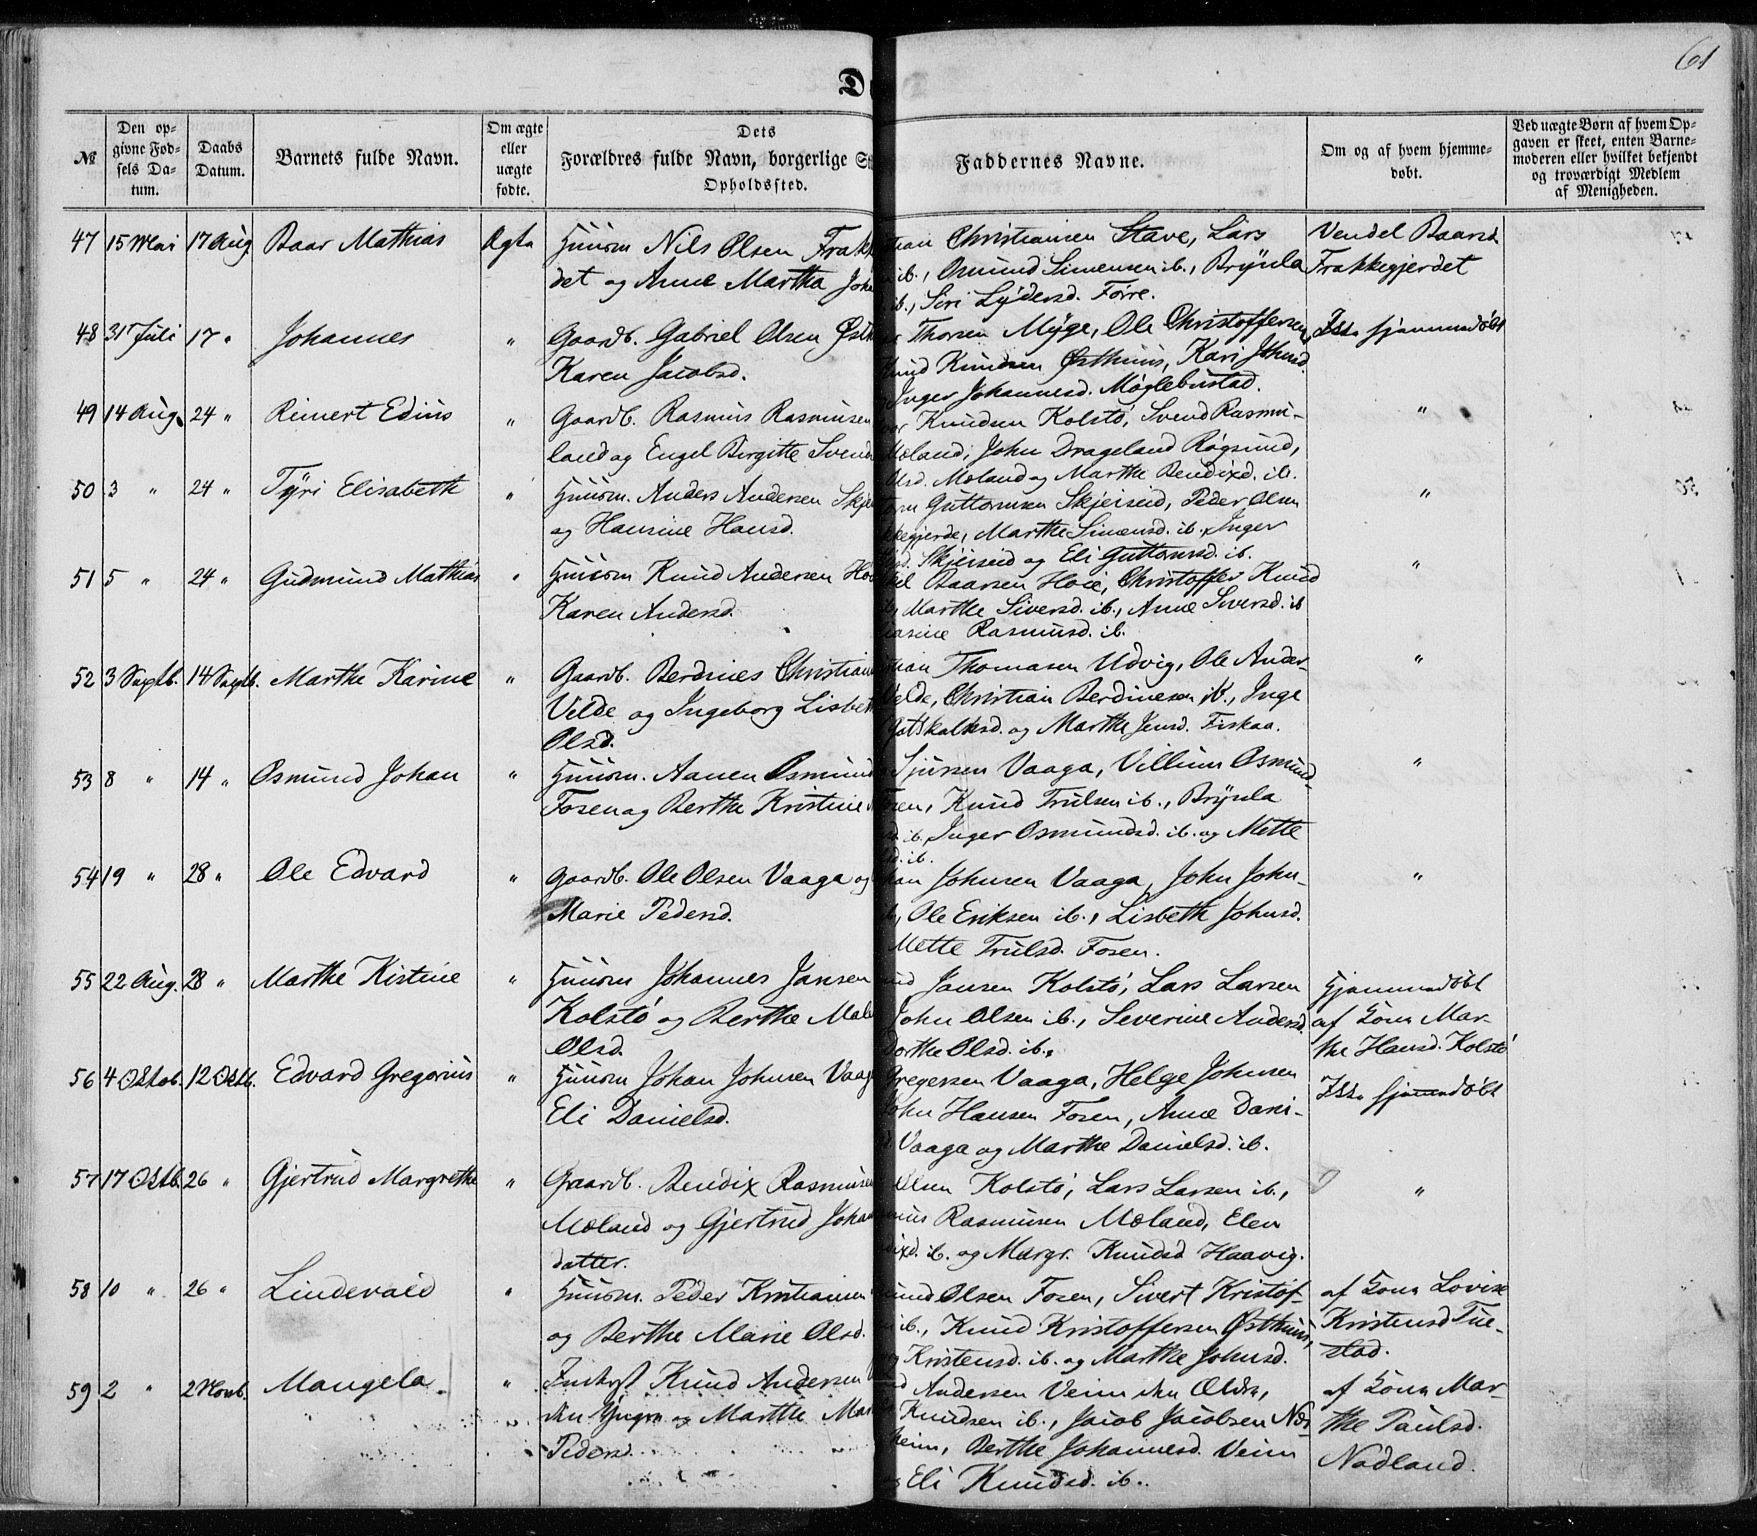 61
D
№
Den op-
givne Fød-
sels Da-
tum.
Daabs
Datum.
Barnets fulde Navn.
Om ægte
eller
uægte
fødte.
Dets
Forældres fulde Navn, borgerlige St
Opholdssted.
Faddernes Navne.
Om og af hvem hjemme-
døbt.
Ved uægte Børn af hvem Op-
gaven er skeet, enten Barne-
moderen eller hvilket bekjendt
og troværdigt Medlem
af Menigheden.
47 15 Mai 17 Aug. Baar Mathias Ægte Huusm Nils Olsen Frakk
det og Anne Martha Joh
tian Christiansen Stave, Lars
ib., Osmund Simensen ib., Brynla
ib., Siri Lydersd. Førre.
Vendel Baarsd.
Frakkegjerdet
48 31 Juli 17 " Johannes " Gaardb. Gabriel Olsen Østh
Karen Jacobsd.
Thorsen Myge, Ole Christoffersen
Knud Knudsen Østhuus, Kari Johnsd.
Inger Johannesd. Møglebustad.
Ikke hjemmedøbt
49 14 Aug. 24 " Reinert Edius " Gaardb. Rasmus Rasmusen
land og Engel Birgitte Svend
Knudsen Kolstø, Svend Rasmu-
Moland, John Drageland Røgsund,
Olsd. Moland og Marthe Bendixd. ib.
"
50 3 " 24 " Tyri Elisabeth " Huusm. Anders Andersen Skje
og Hansine Hansd.
Guttormsen Skjeiseid, Peder Olsen
kegjerde, Marthe Simensd. ib., Inger
Skjeiseid og Eli Guttormsd. ib.
"
51 5 " 24 " Gudmund Mathias " Huusm Knud Andersen Ho
Karen Andersd.
Baarsen Hoie, Christoffer Knud
Marthe Siversd. ib., Anne Siversd. ib
Rasmusd. ib.
"
52 3 Septb. 14 Septb. Marthe Karine " Gaardb. Berdines Christian
Velde og Ingeborg Lisbeth
Olsd.
tian Thomasen Udvig, Ole Ander-
Velde, Christian Berdinesen ib., Inge
Gotskalksd. og Marthe Jensd. Fiskaa.
"
53 8 " 14 " Osmund Johan " Huusm. Aanen Osmund
Fosen og Berthe Kristine
Sjursen Vaaga, Villum Osmund-
Fosen, Knud Trulsen ib., Brynla
ib., Inger Osmundsd. ib. og Mette
d. ib.
"
54 19 " 28 " Ole Edvard " Gaardb. Ole Olsen Vaaga og
Marie Pedersd.
Johnsen Vaaga, John John-
Ole Eriksen ib., Lisbeth Johnsd.
Mette Trulsd. Fosen.
"
55 22 Aug. 28 " Marthe Kistine " Huusm Johannes Jansen
Kolstø og Berthe Male
Olsd.
Jansen Kolstø, Lars Larsen
John Olsen ib., Severine Andersd.
Dorthe Olsd. ib.
Hjemmedøbt
af Kona Mar-
the Hansd. Kolstø
56 4 Oktob. 12 Oktb. Edvard Gregorius " Huusm Johan Johnsen Vaag
Eli Danielsd.
Gregersen Vaaga, Helge Johnsen
John Hansen Fosen, Anne Dani-
Vaaga og Marthe Danielsd. ib.
Ikke hjemmedøbt
57 17 Oktb. 26 " Gjertrud Margrethe " Gaardb. Bendix Rasmusen
Moland og Gjertrud Joha
datter.
Olsen Kolstø, Lars Larsen ib.,
Rasmusen Moland, Elen
ixd. ib. og Margr. Knudsd Haavig.
"
58 10 " 26 " Lindevald " Huusm. Peder Kristiansen
og Berthe Marie Olsd.
mund Olsen Fosen, Sivert Kristof-
ib., Knud Kristoffersen Østhuus,
Kristensd. ib. og Marthe Johnsd.
af Kona Lovise
Kristensd Tue-
stad.
59 2 " 2 Novb. Mangela. " Inderst Knud Andersen
den Yngre og Marthe Mar
Pedersd.
Andersen Veim den Ældre,
Knudsen ib., Jacob Jacobsen Næs-
heim, Berthe Johannesd. Veim
Eli Knudsd. ib.
af Kona Mar-
the Paulsd.
Nadland.